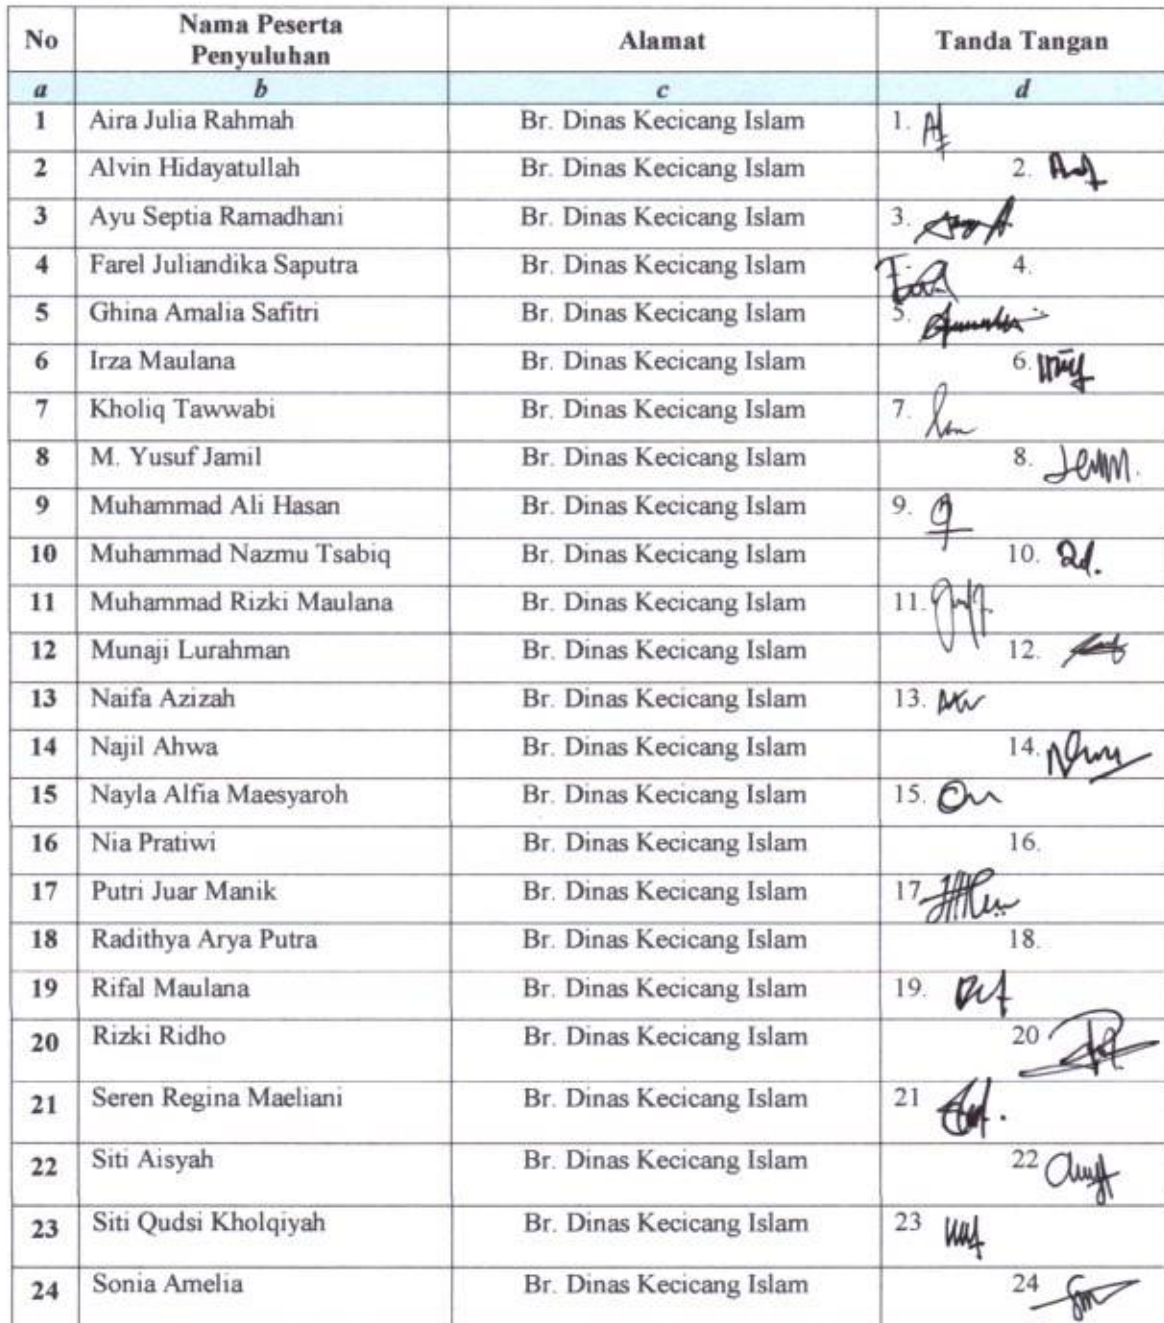 No Nama Peserta Penyuluhan Alamat Tanda Tangan
a b c d
1 Aira Julia Rahmah Br. Dinas Kecicang Islam 1.
2 Alvin Hidayatullah Br. Dinas Kecicang Islam 2.
3 Ayu Septia Ramadhani Br. Dinas Kecicang Islam 3.
4 Farel Juliandika Saputra Br. Dinas Kecicang Islam 4.
5 Ghina Amalia Safitri Br. Dinas Kecicang Islam 5.
6 Irza Maulana Br. Dinas Kecicang Islam 6.
7 Kholiq Tawwabi Br. Dinas Kecicang Islam 7.
8 M. Yusuf Jamil Br. Dinas Kecicang Islam 8.
9 Muhammad Ali Hasan Br. Dinas Kecicang Islam 9.
10 Muhammad Nazmu Tsabiq Br. Dinas Kecicang Islam 10.
11 Muhammad Rizki Maulana Br. Dinas Kecicang Islam 11.
12 Munaji Lurahman Br. Dinas Kecicang Islam 12.
13 Naifa Azizah Br. Dinas Kecicang Islam 13.
14 Najil Ahwa Br. Dinas Kecicang Islam 14.
15 Nayla Alfia Maesyaroh Br. Dinas Kecicang Islam 15.
16 Nia Pratiwi Br. Dinas Kecicang Islam 16.
17 Putri Juar Manik Br. Dinas Kecicang Islam 17
18 Radithya Arya Putra Br. Dinas Kecicang Islam 18.
19 Rifal Maulana Br. Dinas Kecicang Islam 19.
20 Rizki Ridho Br. Dinas Kecicang Islam 20
21 Seren Regina Maeliani Br. Dinas Kecicang Islam 21
22 Siti Aisyah Br. Dinas Kecicang Islam 22
23 Siti Qudsi Kholqiyah Br. Dinas Kecicang Islam 23
24 Sonia Amelia Br. Dinas Kecicang Islam 24